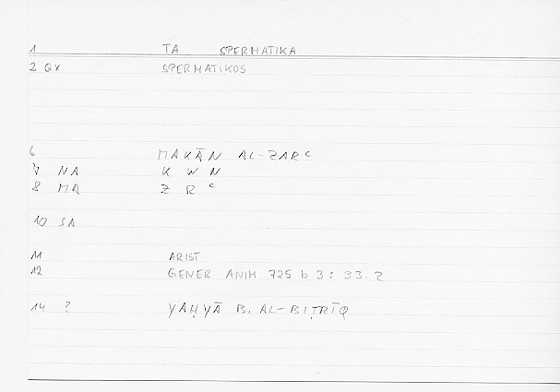 1 TA SPERMATIKA
2 QX SPERMATIKOS
6 MAKĀN AL-ZARᶜ
7 NA K W N
8 MA Z R ᶜ
10 SA
11 ARIST
12 GENER ANIM 725 b 3 : 33.2
14 ? YAḤYĀ B. AL-BIṬRĪQ